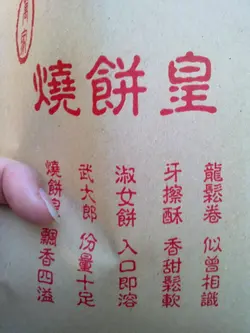 家
燒餅皇
龍鬆卷 似曾相識
牙擦酥 香甜鬆軟
淑女餅 入口即溶
武大郎 份量十足
燒餅皇 飄香四溢